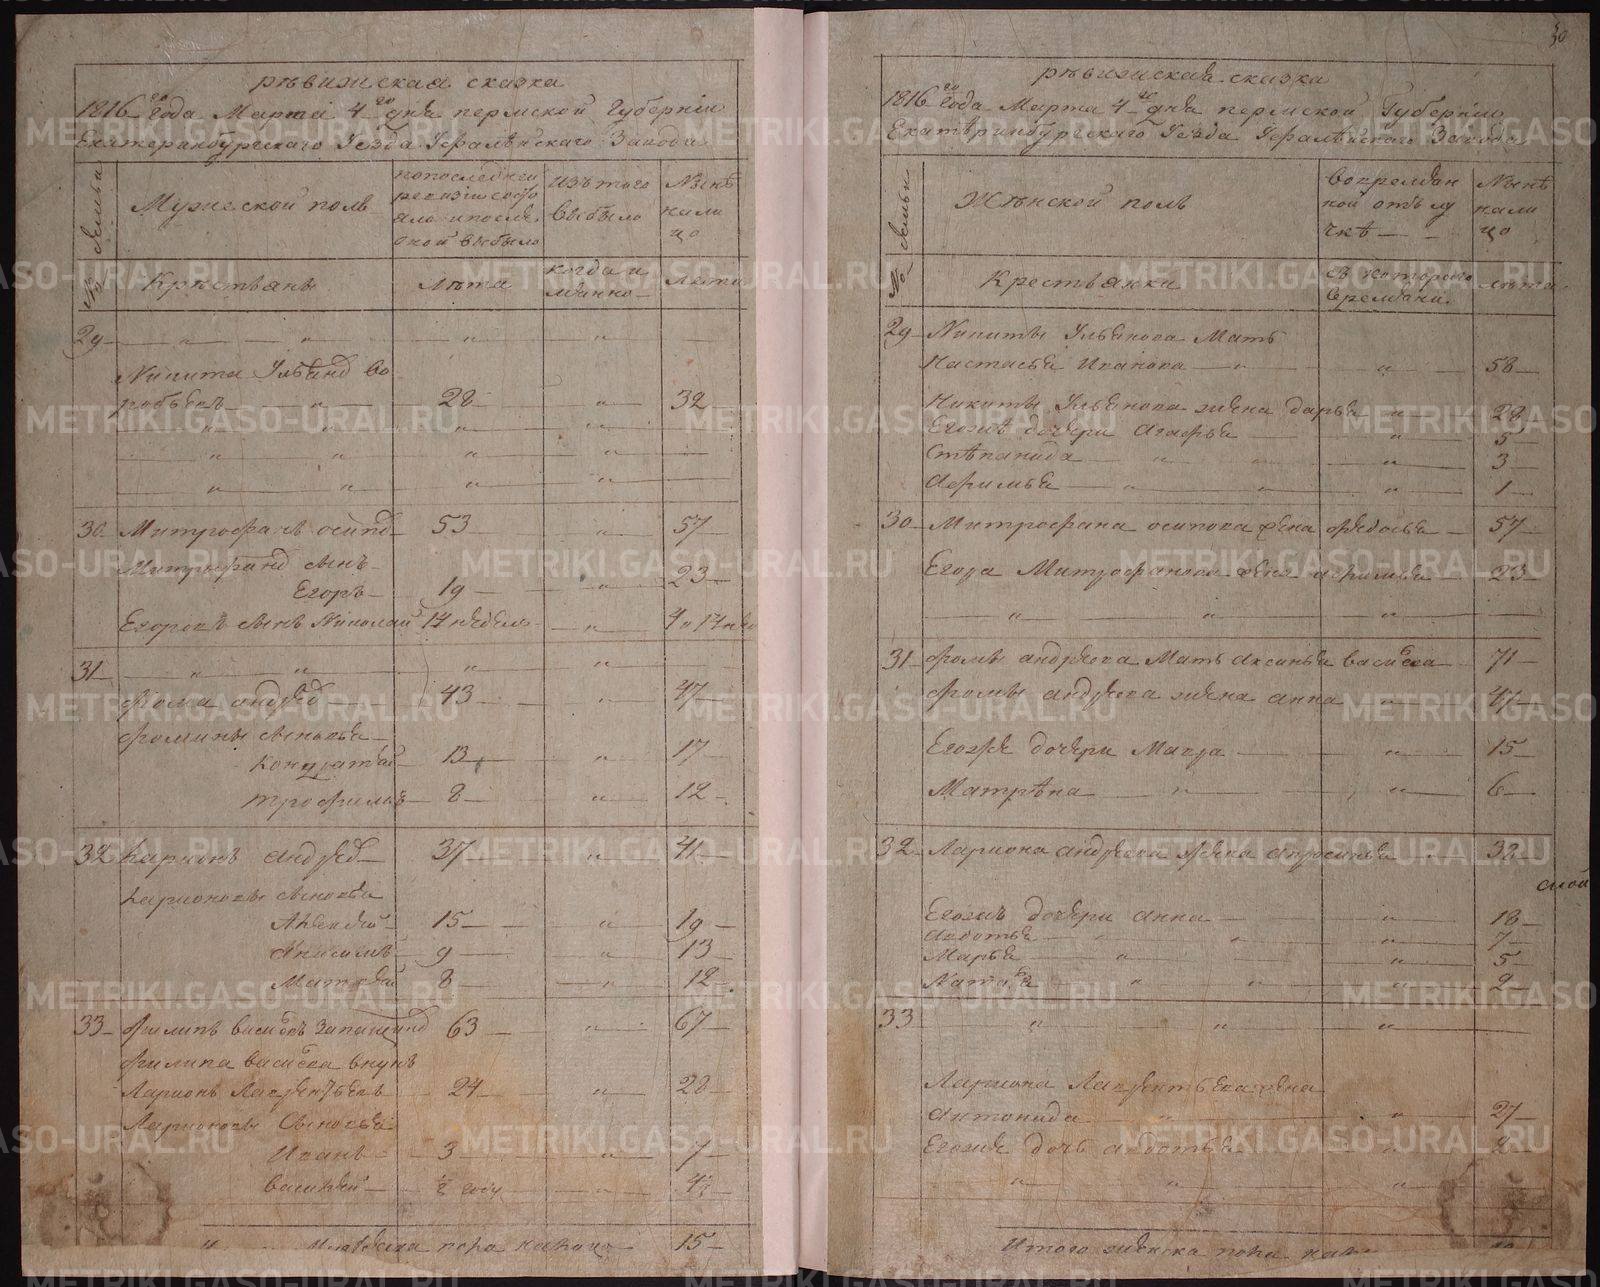 рѣвижская сказка
1816го года Марта 4го дня пермской Губерніи
Екатеринбургскаго Уезда Уфалѣйскаго Завода
№ семьи
Мужеской полъ
попоследней ревизіи состо яло ипосле оной выбыло
Изътого выбыло
Нынѣ нали цо
Крѣстьянѣ
Лѣта
когда и
Лета
29
Никита Ульянд во
робьевъ 28 32
30 Митрофанъ осипд 53 57
Митрофанд сынъ
Егоръ 19 23
Егоровъ сынъ Николай 17 недель 4 и 17 нед
31
фома андреед 43 47
фомины сыновья
Кондратей 13 17
трофимъ 8 12
32 Ларионъ андреед 37 41
Ларионовы сыновья
Алексей 15 19
Анисимъ 9 13
Матвей 8 12
33 филипъ васильевъ 63 67
филипа васильева внукъ
Ларионъ Лаврентьевъ 24 28
Ларионовы Сыновья
Иванъ 3 7
василей ½ году 4½
мужеска пола налицо 15
30
рѣвижская сказка
1816го года Марта 4го дня пермской Губерніи
Екатѣринбургскаго Уезда Уфалѣйскаго Завода
№ семьи
Жѣнской полъ
вовремян ной отълу чкѣ
Нынѣ нали цо
Крестьянки
съ котораго времѣни
лѣта
29 Никиты Ульянова Мать
Настасья Иванова 58
Никиты Ульянова жена дарья 28
Егожѣ дочери Агафья 5
Стѣпанида 3
Афимья 1
30 Митрофана осипова жена федосья 57
Егора Митрофанова жена афимья 23
31 фомы андреева Мать Аксинья васильева 71
фомы андреева жена анна 47
Егожѣ дочери Мавра 15
Матрѣна 6
32 Лариона андреева жена Апросинья 38
Егожъ дочери анна 18
Авдотья 7
Марья 5
Наталья 2
33
Лариона Лаврентьева жена
Антонида 27
Егожѣ дочь авдотья 2
Итого женска пола
METRIKI.GASO-URAL.RU